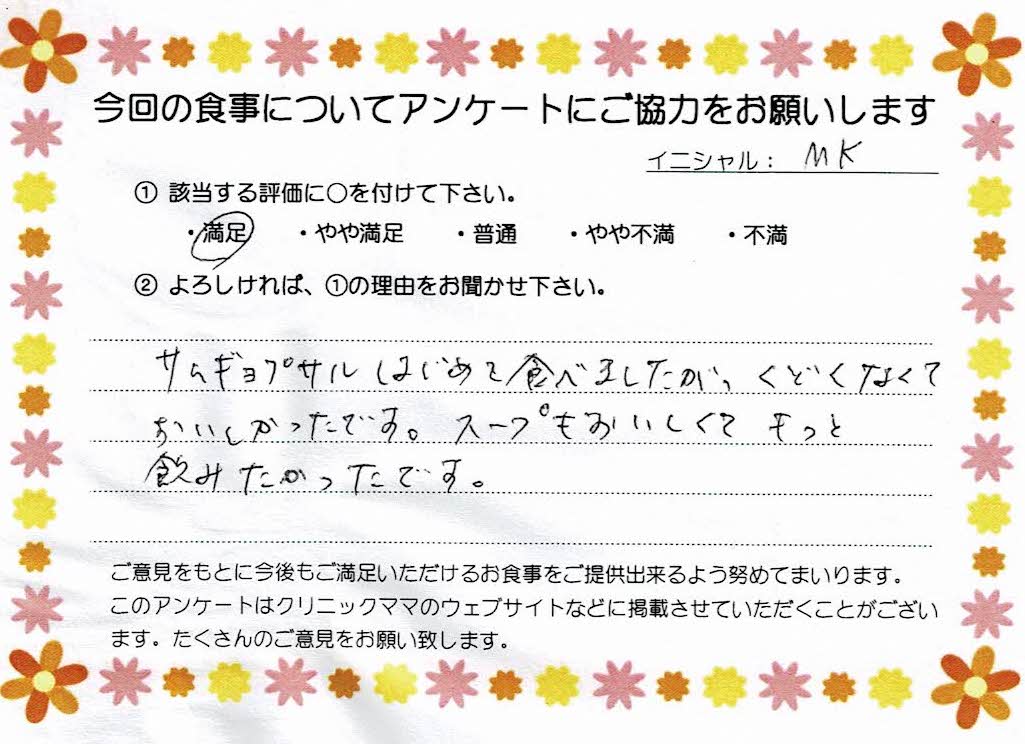 今回の食事についてアンケートにご協力をお願いします
イニシャル： MK
① 該当する評価に○を付けて下さい。
・満足 ・やや満足 ・普通 ・やや不満 ・不満
② よろしければ、①の理由をお聞かせ下さい。
サムギョプサルはじめて食べましたが、くどくなくて
おいしかったです。スープもおいしくてもっと
飲みたかったです。
ご意見をもとに今後もご満足いただけるお食事をご提供出来るよう努めてまいります。
このアンケートはクリニックママのウェブサイトなどに掲載させていただくことがござい
ます。たくさんのご意見をお願い致します。